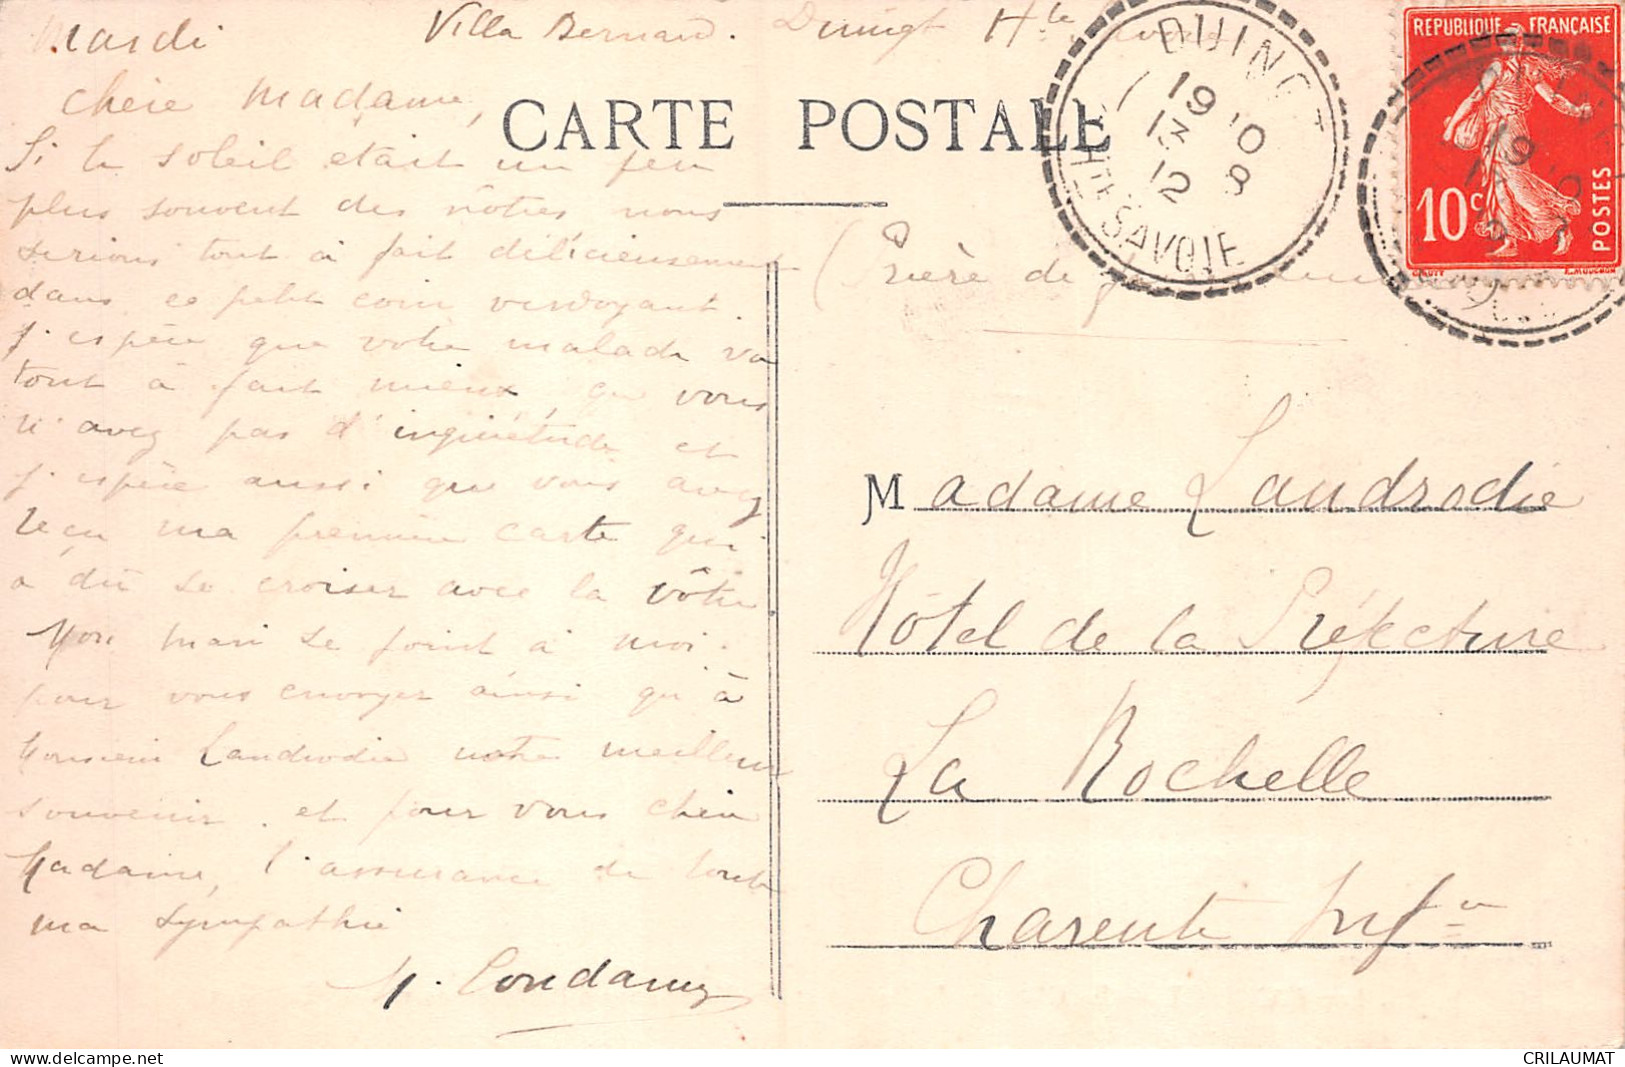 Mardi Villa Bernard. Duingt Hte Savoie
Chère Madame,
Si le soleil était un peu
plus souvent des nôtres nous
serions tout à fait délicieusement
dans ce petit coin verdoyant.
J'espère que votre malade va
tout à fait mieux, que vous
n'avez pas d'inquiétude et
j'espère aussi que vous avez
reçu ma première carte qui
a dû se croiser avec la vôtre.
Mon mari se joint à moi
pour vous envoyer ainsi qu'à
Monsieur Landrodie notre meilleur
souvenir. et pour vous chère
Madame, l'assurance de toute
ma sympathie
M. Condamy
CARTE POSTALE
(Prière de
Madame Landrodie
Hôtel de la Préfecture
La Rochelle
Charente Infre
DUINGT
19 10
13
12 8
HTE SAVOIE
REPUBLIQUE FRANÇAISE
10c POSTES
E. MOUCHON
CRILAUMAT